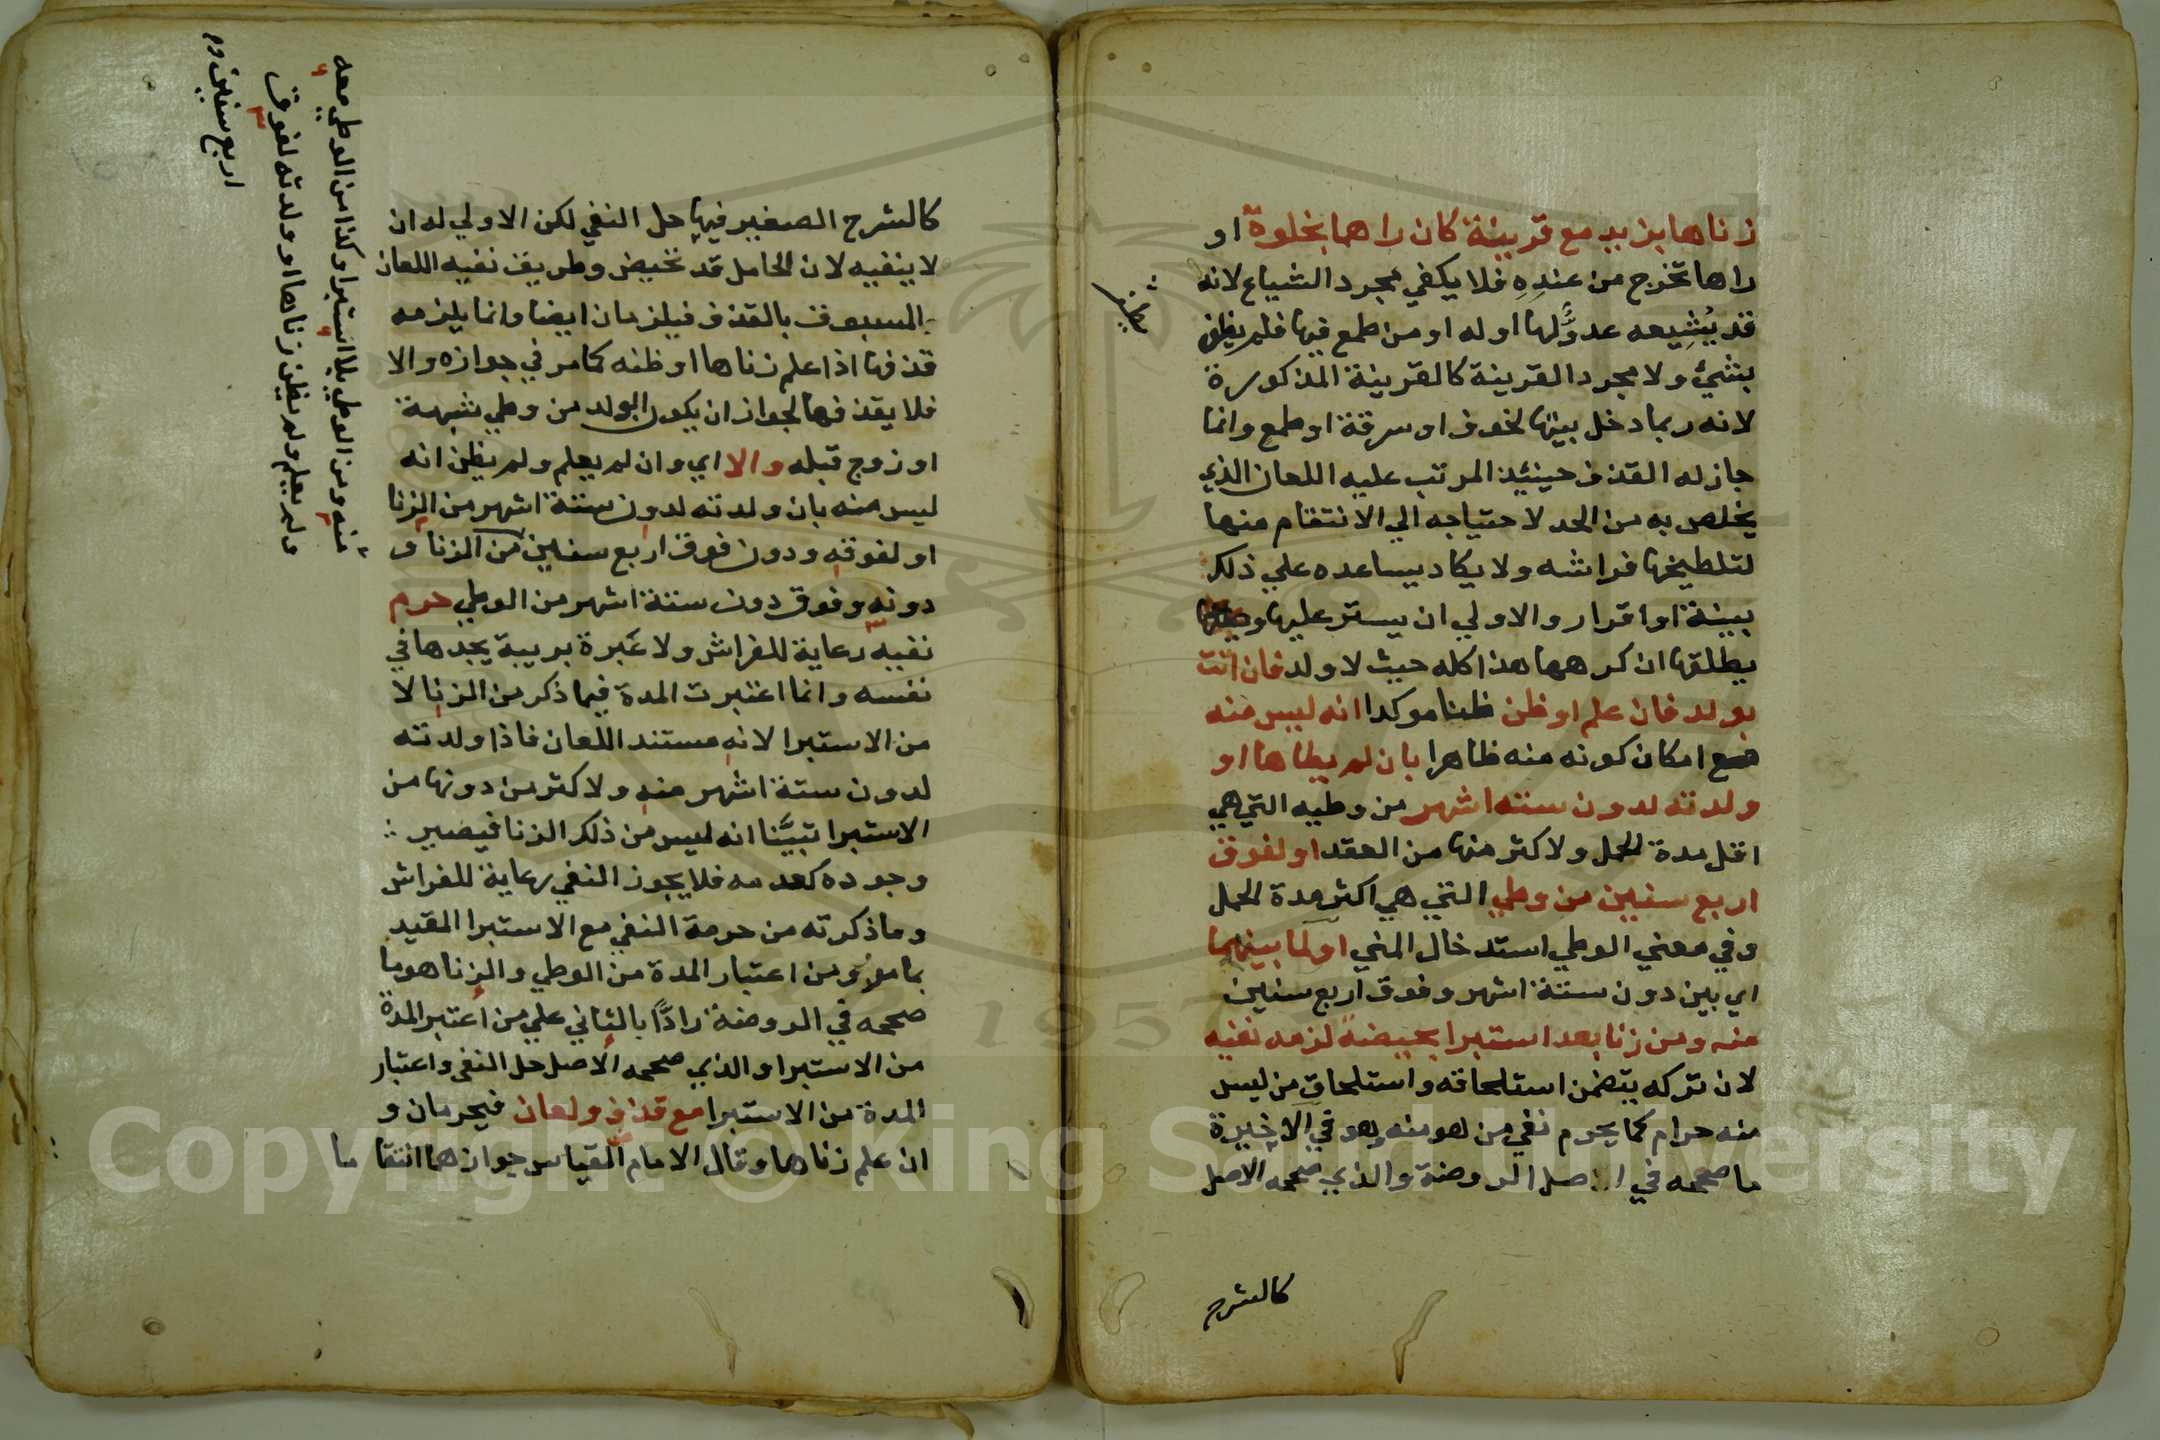 زناها بزيد مع قرينة كان راهما بخلوة او
راها تخرج من عنده فلا يكفي مجرد الشياع لانه
قد يُشِيعه عدوٌّ لها او له او من طمع فيها فلم يظفر
بشيء ولا مجرد القرينة كالقرينة المذكورة
لانه ربما دخل بيتها لخوف او سرقة او طمع وانما
جاز له القذف حينئذ المرتب عليه اللعان الذي
يخلص به من الحد لاحتياجه الي الانتقام منها
لتلطيخها فراشه ولا يكاد يساعده علي ذلك
بينة او اقرار والاولي ان يستر عليها و
يطلقها ان كرهها هذا كله حيث لا ولد فان اتت
بولد فان علم او ظن ظنا موكدا انه ليس منه
مع امكان كونه منه ظاهرا بان لم يطاها او
ولدته لدون ستة اشهر من وطيه التي هي
اقل مدة الحمل ولاكثر منها من العقد او لفوق
اربع سنين من وطي التي هي اكثر مدة الحمل
وفي معني الوطي استدخال المني او لما بينهما
اي بين دون ستة اشهر وفوق اربع سنين
منه ومن زنا بعد استبرا بحيضة لزمه نفيه
لان تركه يتضمن استلحاقه واستلحاق من ليس
منه حرام كما يحرم نفي من هو منه وهو في الاخيرة
ما صححه في اصل الروضة والذي صححه الاصل
كالشرح
كالشرح الصغير فيها حل النفي لكن الاولي له ان
لا ينفيه لان الحامل قد تحيض وطريق نفيه اللعان
المسبوق بالقذف فيلزمان ايضا وانما يلزمه
قذفها اذا علم زناها او ظنه كما مر في جوازه والا
فلا يقذفها لجواز ان يكون الولد من وطي شبهة
او زوج قبله والا اي وان لم يعلم ولم يظن انه
ليس منه بان ولدته لدون ستة اشهر من الزنا
او لفوقه ودون فوق اربع سنين من الزنا و
دونه وفوق دون ستة اشهر من الوطي حرم
نفيه رعاية للفراش ولا عبرة بريبة يجدها في
نفسه وانما اعتبرت المدة فيما ذكر من الزنا لا
من الاستبرا لانه مستند اللعان فاذا ولدته
لدون ستة اشهر منه ولاكثر من دونها من
الاستبرا تبيَّنا انه ليس من ذلك الزنا فيصير
وجوده كعدمه فلا يجوز النفي رعاية للفراش
وما ذكرته من حرمة النفي مع الاستبرا المقيد
بما مر ومن اعتبار المدة من الوطي والزنا هو ما
صححه في الروضة رادًّا بالثاني علي من اعتبر المدة
من الاستبرا والذي صححه الاصل حل النفي واعتبار
المدة من الاستبرا مع قذف ولعان فيحرمان و
ان علم زناها وقال الامام القياس جوازهما انتقاما
منه ومن الوطي بلا استبرا وكذا من الوطي معه
ولم يعلم ولم يظن زناها او ولدته لفوق
اربع سنين